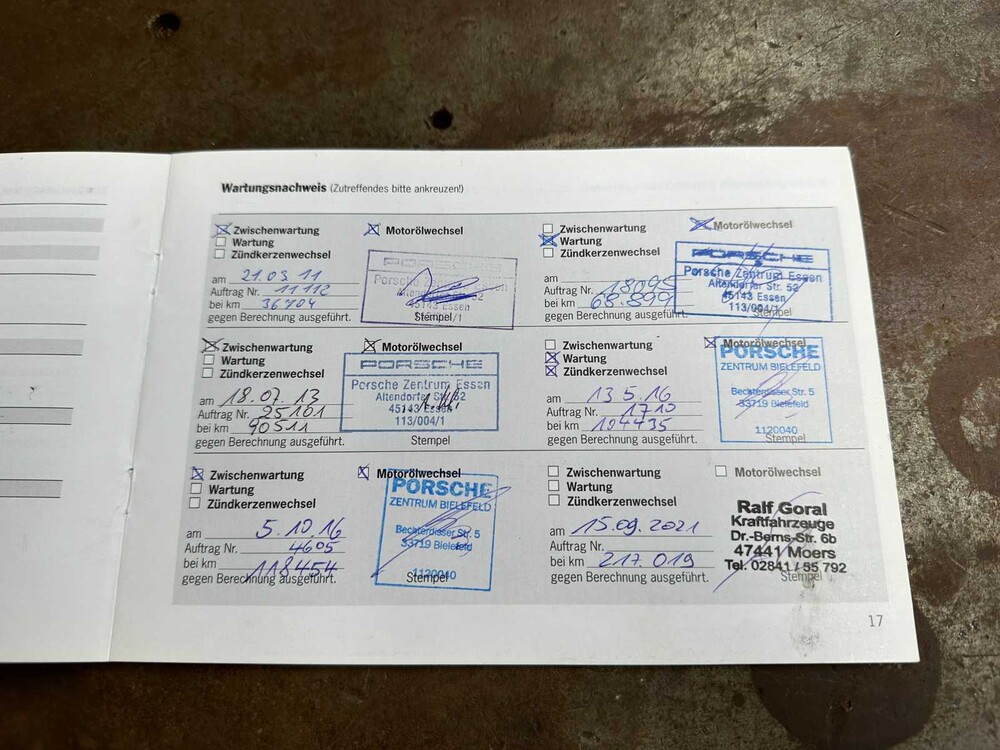 Wartungsnachweis (Zutreffendes bitte ankreuzen!)
Zwischenwartung
Motorölwechsel
Wartung
Zündkerzenwechsel
am 21.03 11
Auftrag Nr. 11112
bei km 36704
gegen Berechnung ausgeführt.
PORSCHE
Porsche Z
45143 Essen
Stempel
Zwischenwartung
Motorölwechsel
Wartung
Zündkerzenwechsel
am
Auftrag Nr. 18095
bei km 68.899
gegen Berechnung ausgeführt.
PORSCHE
Porsche Zentrum Essen
Altendorfer Str. 52
45143 Essen
113/004/1
Stempel
Zwischenwartung
Motorölwechsel
Wartung
Zündkerzenwechsel
am 18.07.13
Auftrag Nr. 25101
bei km 90511
gegen Berechnung ausgeführt.
PORSCHE
Porsche Zentrum Essen
Altendorfer Str. 52
45143 Essen
113/004/1
Stempel
Zwischenwartung
Motorölwechsel
Wartung
Zündkerzenwechsel
am 13.5.16
Auftrag Nr. 1710
bei km 104435
gegen Berechnung ausgeführt.
PORSCHE
ZENTRUM BIELEFELD
Bechterdisser Str. 5
33719 Bielefeld
1120040
Stempel
Zwischenwartung
Motorölwechsel
Wartung
Zündkerzenwechsel
am 5.10.16
Auftrag Nr. 4605
bei km 118454
gegen Berechnung ausgeführt.
PORSCHE
ZENTRUM BIELEFELD
Bechterdisser Str. 5
33719 Bielefeld
1120040
Stempel
Zwischenwartung
Motorölwechsel
Wartung
Zündkerzenwechsel
am 15.09.2021
Auftrag Nr.
bei km 217.019
gegen Berechnung ausgeführt.
Ralf Goral
Kraftfahrzeuge
Dr.-Berns-Str. 6b
47441 Moers
Tel. 02841 / 55 792
Stempel
17